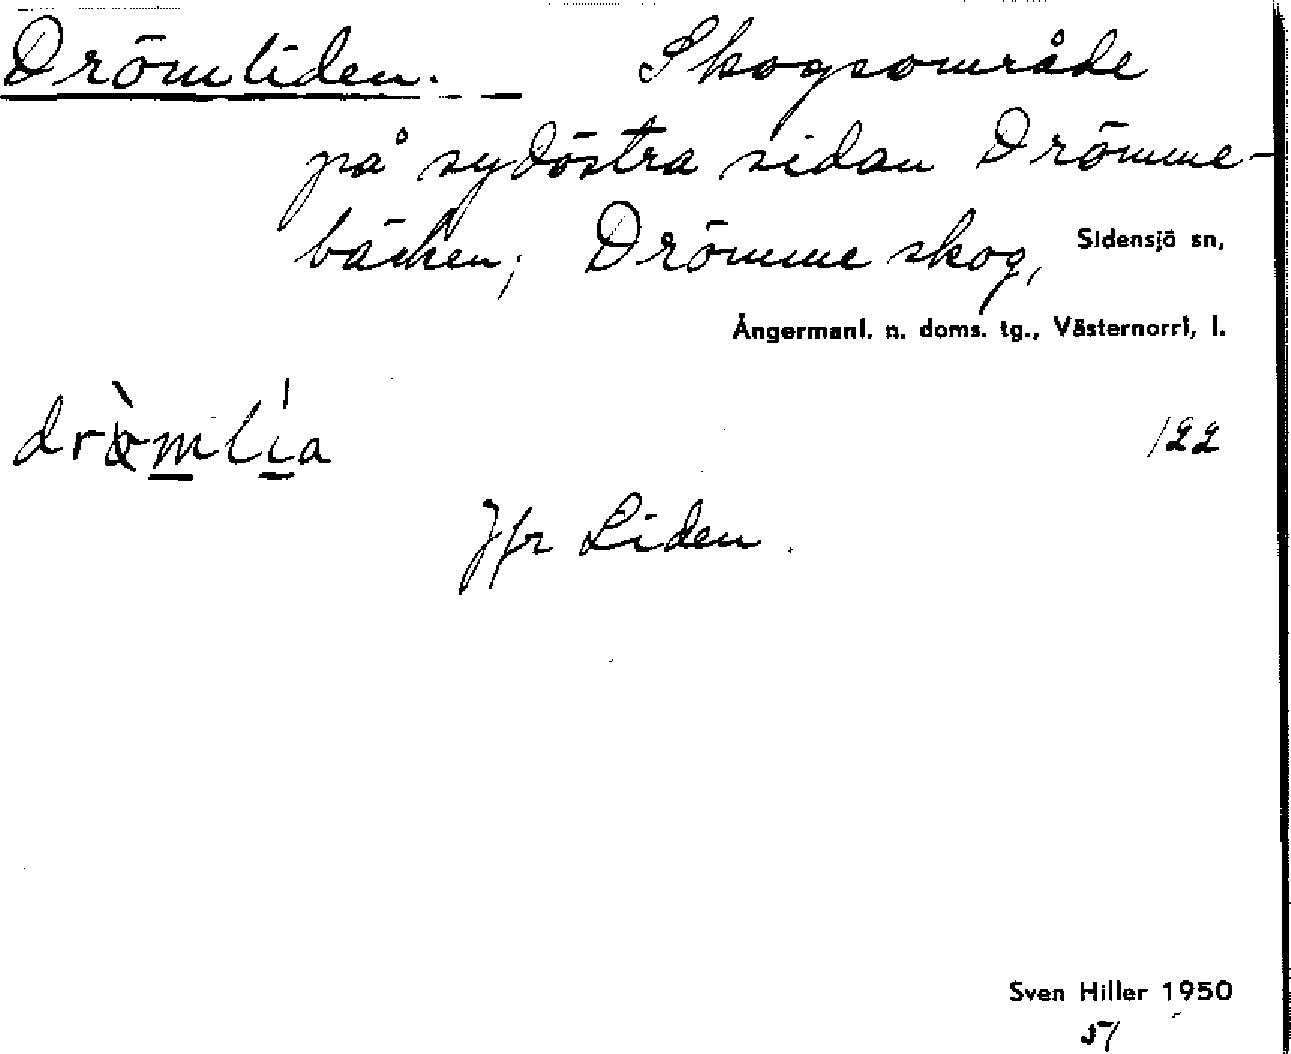 Drömliden. Skogsområde
på sydöstra sidan Drömme-
bäcken; Drömme skog, Sidensjö sn,
Ångermanl. n. doms. tg., Västernorrl, l.
122
Jfr Liden.
Sven Hiller 1950